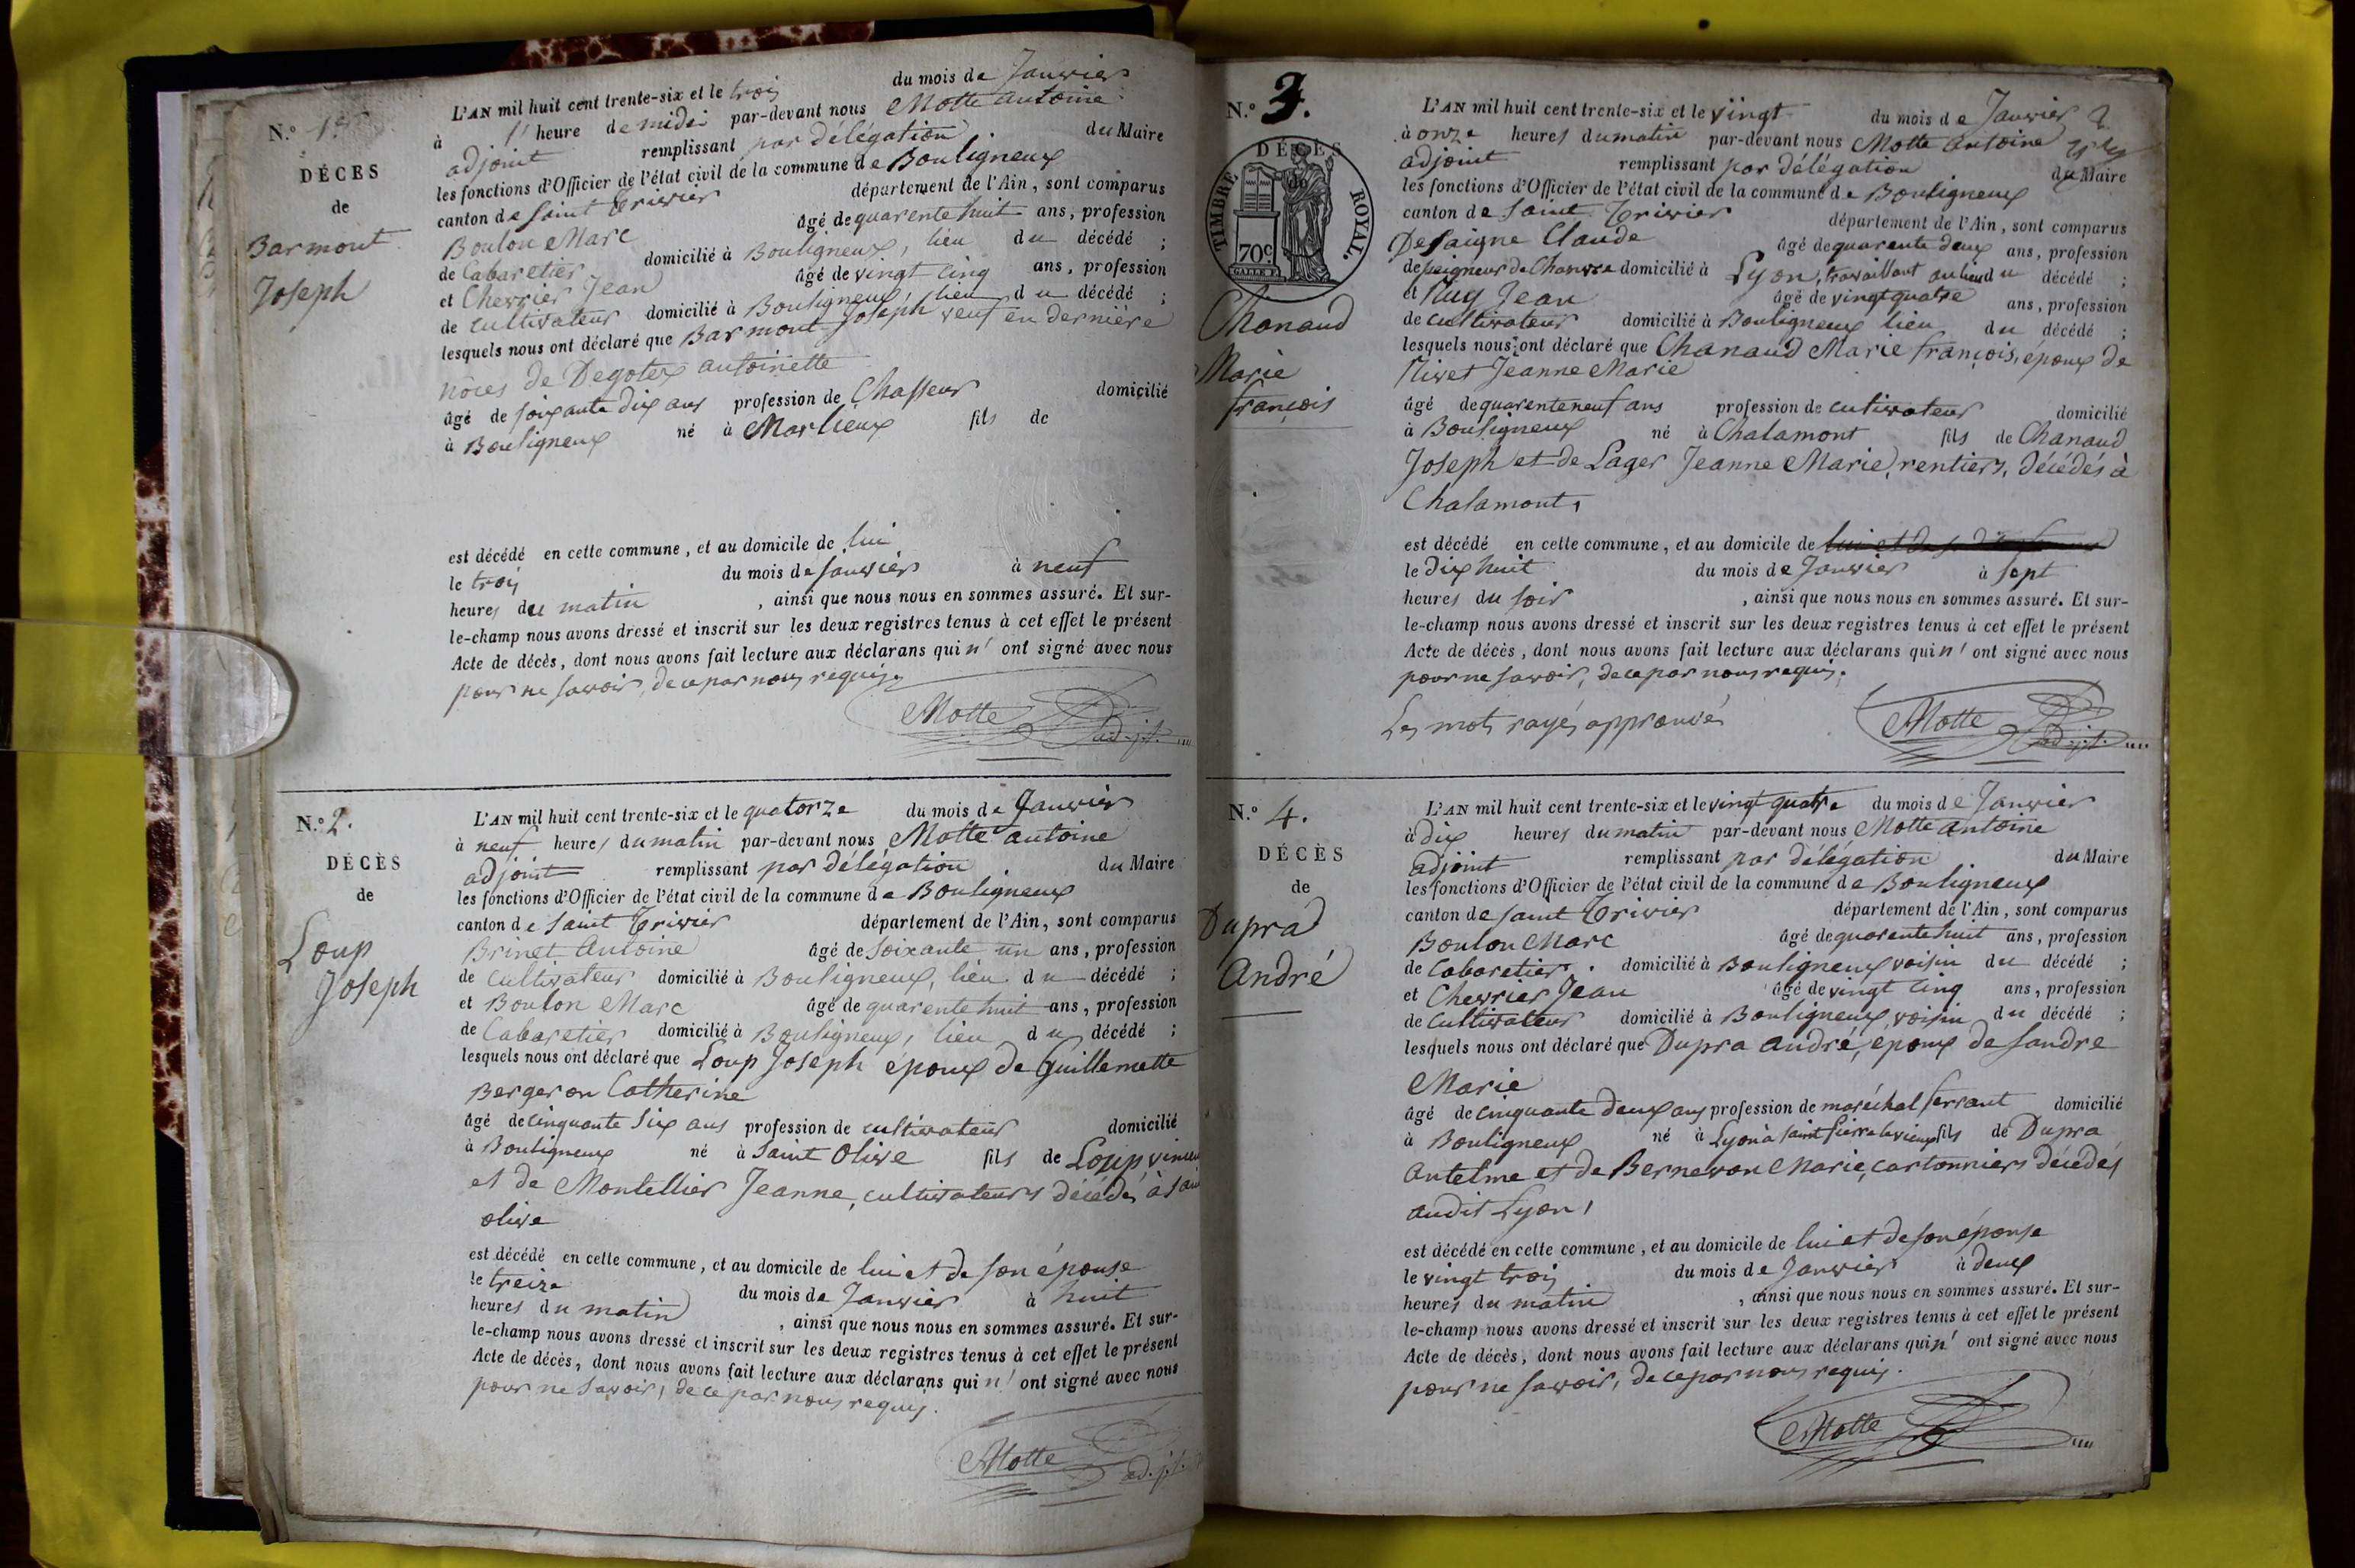 N.º 1.er
DÉCES
de
Barmont
Joseph
L'AN mil huit cent trente-six et le trois du mois de Janvier
à 1' heure de midi par-devant nous Motte antoine
adjoint remplissant par délégation du Maire
les fonctions d'Officier de l'état civil de la commune de Bouligneux
canton de Saint Trivier département de l'Ain, sont comparus
Boulon Marc âgé de quarente huit ans, profession
de Cabaretier domicilié à Bouligneux, lieu du décédé ;
et Chevrier Jean âgé de vingt cinq ans, profession
de cultivateur domicilié à Bouligneux, lieu du décédé ;
lesquels nous ont déclaré que Barmont Joseph veuf en dernière
nôces de Degotex antoinette
âgé de soixante dix ans profession de Chasseur domicilié
à Bouligneux né à Marlieux fils de
est décédé en cette commune, et au domicile de lui
le trois du mois de Janvier à neuf
heures du matin , ainsi que nous nous en sommes assuré. Et sur-
le-champ nous avons dressé et inscrit sur les deux registres tenus à cet effet le présent
Acte de décès, dont nous avons fait lecture aux déclarans qui n' ont signé avec nous
pour ne savoir, de ce par nous requis.
Motte adjt.
N.º 2.
DÉCÈS
de
Loup
Joseph
L'AN mil huit cent trente-six et le quatorze du mois de Janvier
à neuf heures du matin par-devant nous Motte antoine
adjoint remplissant par délégation du Maire
les fonctions d'Officier de l'état civil de la commune de Bouligneux
canton de Saint Trivier département de l'Ain, sont comparus
Brinet Antoine âgé de Soixante un ans, profession
de cultivateur domicilié à Bouligneux, lieu du décédé ;
et Boulon Marc âgé de quarente huit ans, profession
de Cabaretier domicilié à Bouligneux, lieu du décédé ;
lesquels nous ont déclaré que Loup Joseph époux de Guillemette
Bergeron Catherine
âgé de cinquante Six ans profession de cultivateur domicilié
à Bouligneux né à Saint Olive fils de Loup
et de Montellier Jeanne, cultivateurs décédés à
olive
est décédé en cette commune, et au domicile de lui et de son épouse
le treize du mois de Janvier à huit
heures du matin , ainsi que nous nous en sommes assuré. Et sur-
le-champ nous avons dressé et inscrit sur les deux registres tenus à cet effet le présent
Acte de décès, dont nous avons fait lecture aux déclarans qui n' ont signé avec nous
pour ne Savoir, de ce par nous requis.
Motte adjt.
N.º 3.
DÉCÈS
de
TIMBRE ROYAL.
70c
Chanaud
Marie
françois
L'AN mil huit cent trente-six et le vingt du mois de Janvier 2
à onze heures du matin par-devant nous Motte Antoine
adjoint remplissant par délégation du Maire
les fonctions d'Officier de l'état civil de la commune de Bouligneux
canton de Saint Trivier département de l'Ain, sont comparus
Desaigne Claude âgé de quarente deux ans, profession
de peigneur de Chanvre domicilié à Lyon, travaillant au lieu du décédé ;
et Nuy Jean âgé de vingt quatre ans, profession
de cultivateur domicilié à Bouligneux lieu du décédé ;
lesquels nous ont déclaré que Chanaud Marie françois, époux de
Nivet Jeanne Marie
âgé de quarente neuf ans profession de cutivateur domicilié
à Bouligneux né à Chalamont fils de Chanaud
Joseph et de Lager Jeanne Marie, rentiers, décédés à
Chalamont,
est décédé en cette commune, et au domicile de
le dix huit du mois de Janvier à sept
heures du soir , ainsi que nous nous en sommes assuré. Et sur-
le-champ nous avons dressé et inscrit sur les deux registres tenus à cet effet le présent
Acte de décès, dont nous avons fait lecture aux déclarans qui n' ont signé avec nous
pour ne savoir, de ce par nous requis.
Les mots rayés approuvés
Motte adjt.
N.º 4.
DÉCÈS
de
Duprad
André
L'AN mil huit cent trente-six et le vingt quatre du mois de Janvier
à dix heures du matin par-devant nous Motte antoine
adjoint remplissant par délégation du Maire
les fonctions d'Officier de l'état civil de la commune de Bouligneux
canton de saint Trivier département de l'Ain, sont comparus
Boulon Marc âgé de quarente huit ans, profession
de Cabaretier. domicilié à Bouligneux voisin du décédé ;
et Chevrier Jean âgé de vingt cinq ans, profession
de Cultivateur domicilié à Bouligneux, voisin du décédé ;
lesquels nous ont déclaré que Dupra André, époux de Sandre
Marie
âgé de cinquante deux ans profession de maréchal ferrant domicilié
à Bouligneux né à Lyon à Saint Pierre le vieux fils de Dupra
Antelme et de Bernevon Marie, cartonniers décédés
audit Lyon,
est décédé en cette commune, et au domicile de lui et de son épouse
le vingt trois du mois de Janvier à deux
heures du matin , ainsi que nous nous en sommes assuré. Et sur-
le-champ nous avons dressé et inscrit sur les deux registres tenus à cet effet le présent
Acte de décès, dont nous avons fait lecture aux déclarans qui n' ont signé avec nous
pour ne savoir, de ce par nous requis.
Motte